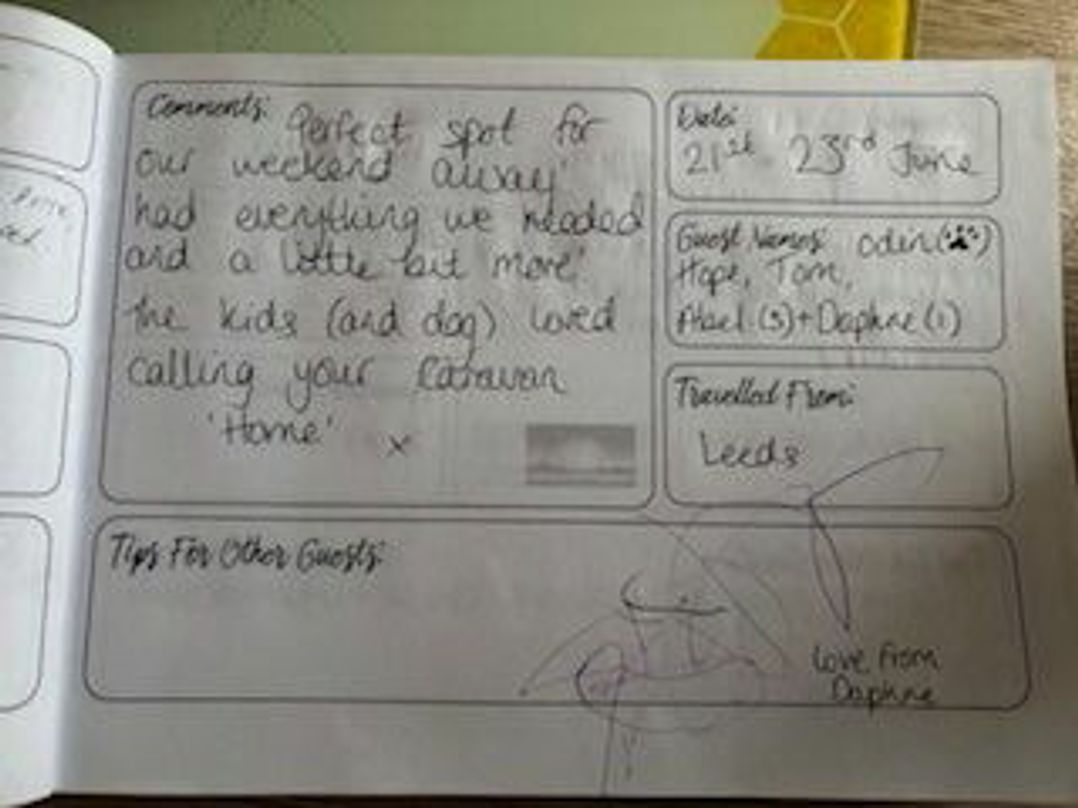 Comments: Perfect spot for
our weekend away!
had everything we needed
and a little bit more!
the kids (and dog) loved
calling your caravan
'Home' x
Date:
21st 23rd June
Guest Names: Odin ( )
Hope, Tom,
(5)+Daphne (1)
Travelled From:
Leeds
Tips For Other Guests:
Love from
Daphne